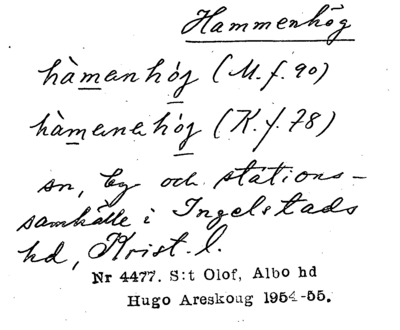 Hammenhög
hàmanhǿg (M.f. 90)
hàmanahǿg (K.f. 78)
sn, by och stations-
samhälle i Ingelstads
hd, Krist. l.
Nr 4477. S:t Olof, Albo hd
Hugo Areskoug 1954-55.